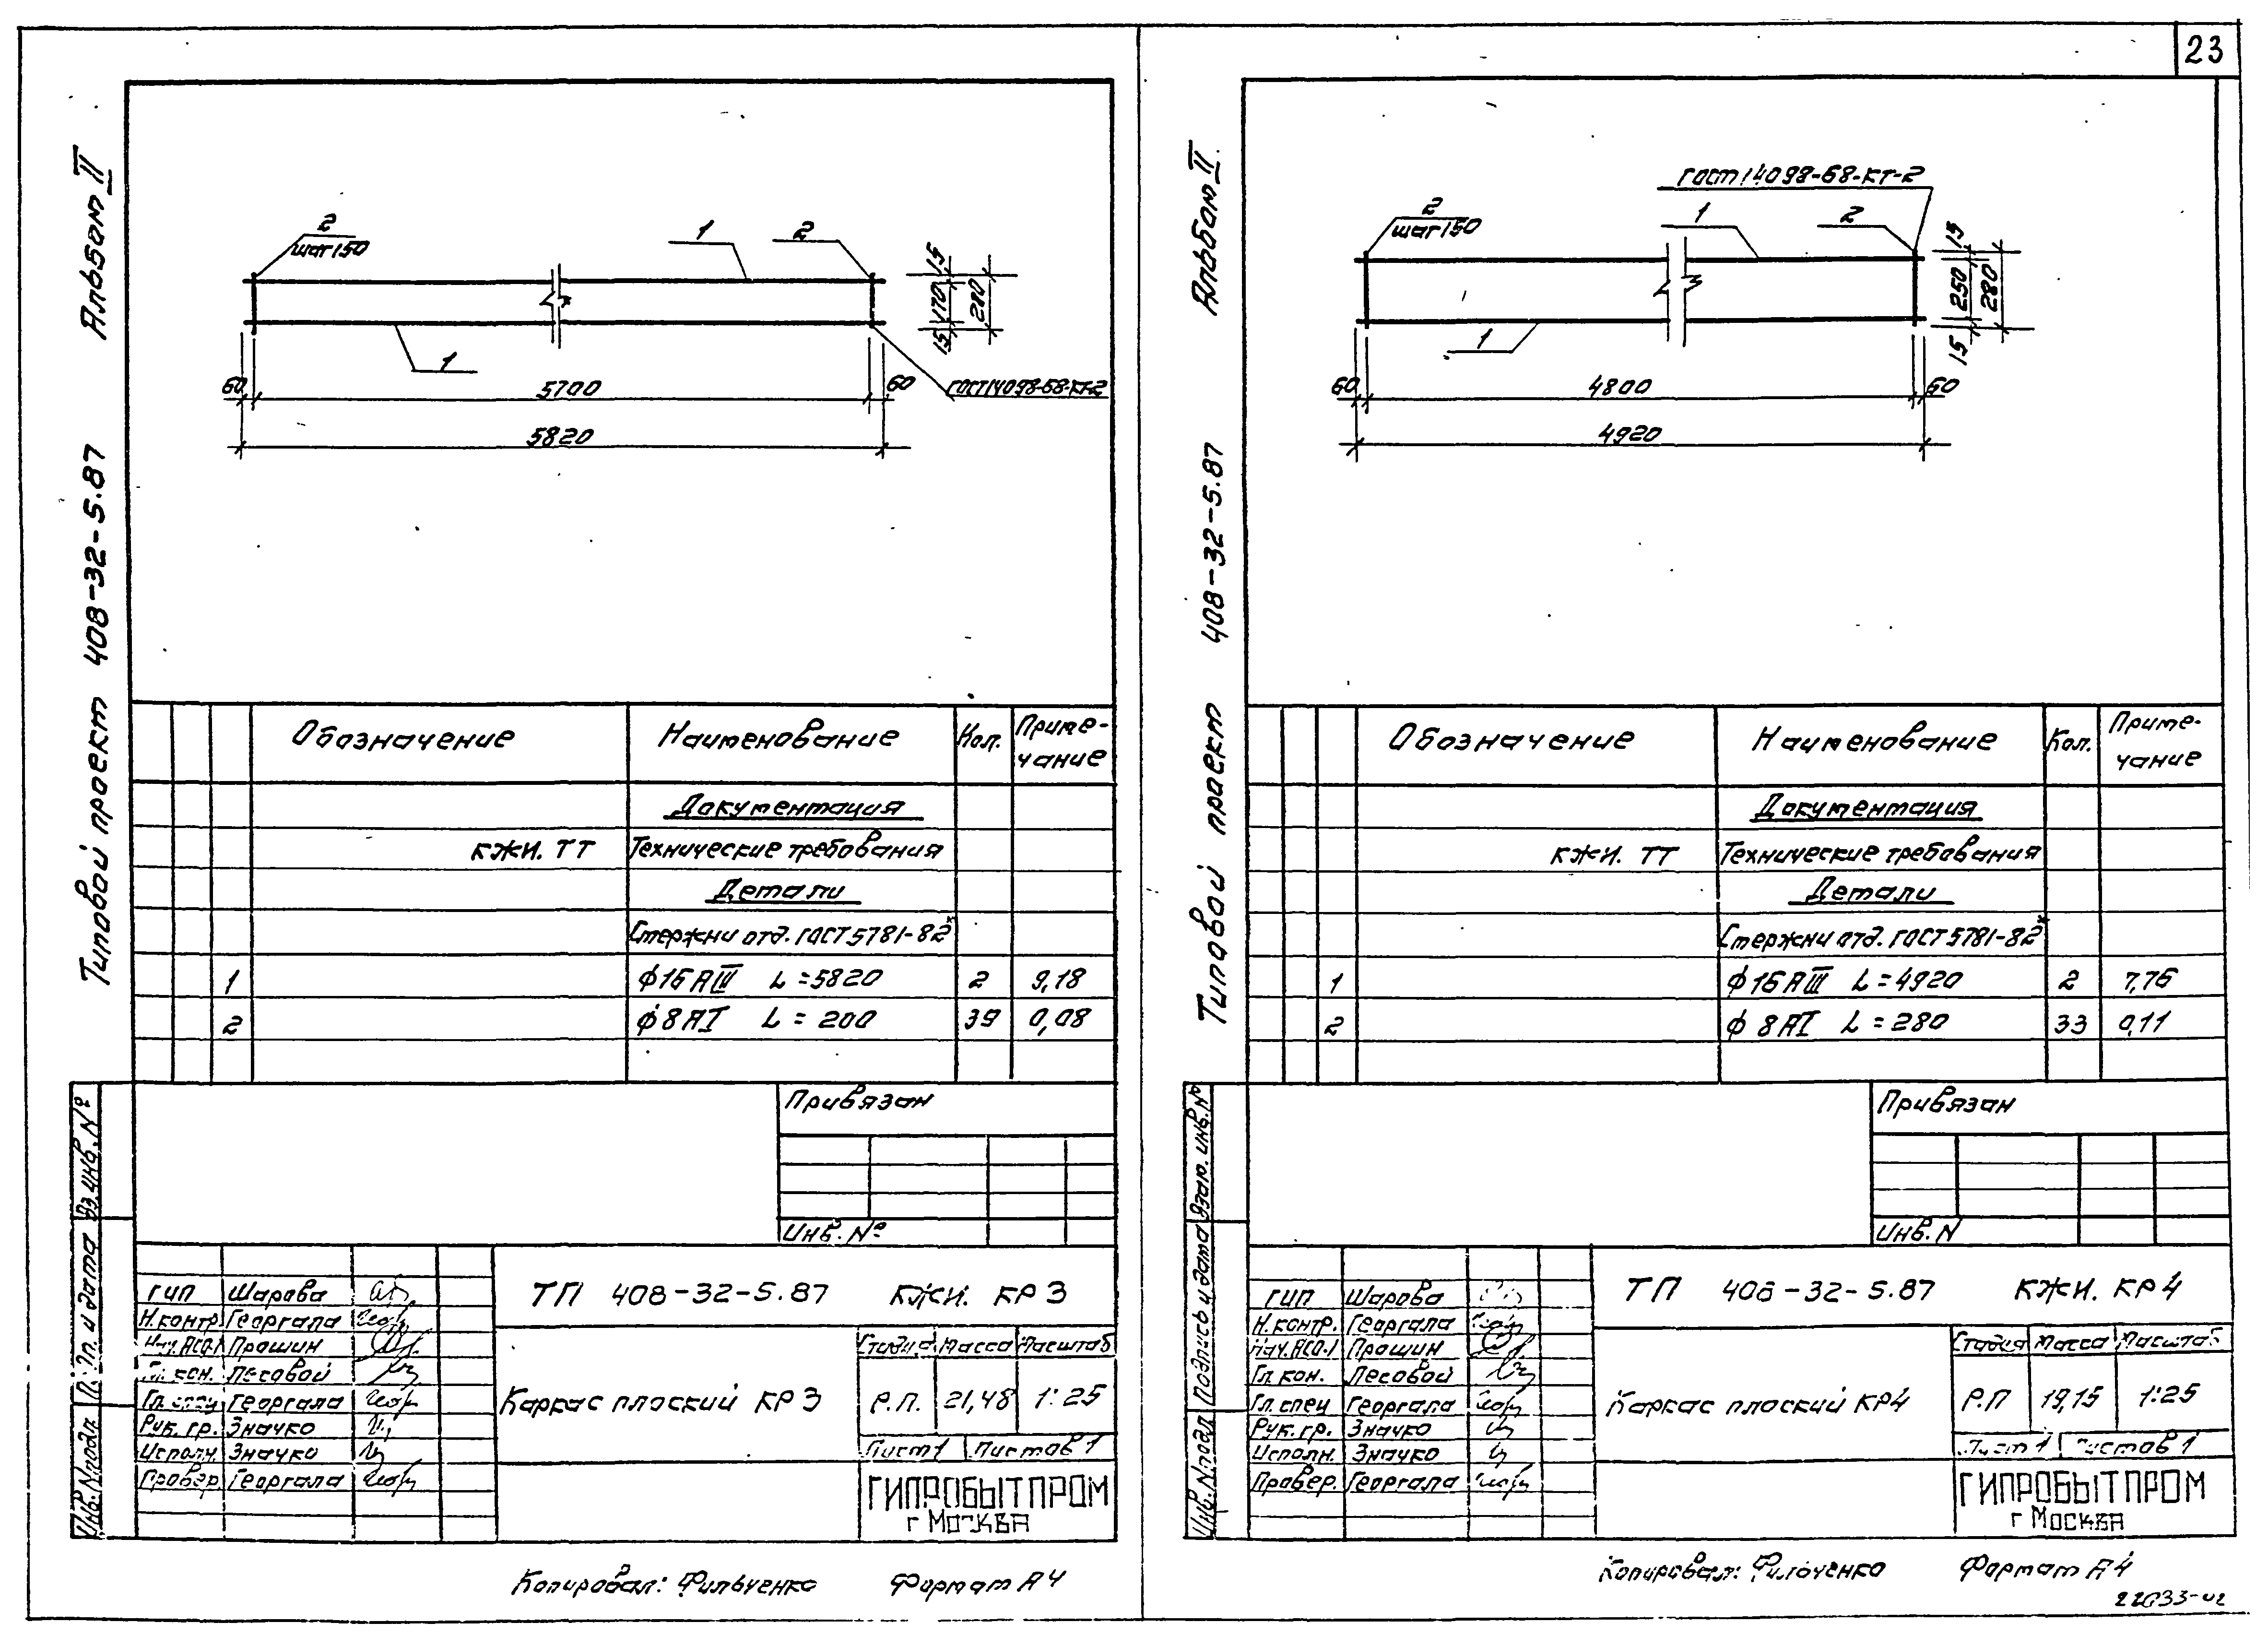 23
Альбом II
Типовой проект 408-32-5.87
2
шаг 150
1
2
15
170
280
15
1
60
5700
60
ГОСТ14098-68-КТ-2
5820
Обозначение
Наименование
Кол.
Приме-
чание
Документация
КЖИ. ТТ
Технические требования
Детали
Стержни отд. ГОСТ 5781-82*
1
ф16АIII L=5820
2
9,18
2
ф8АI L=200
39
0,08
Привязан
Инв. №
Вз.инв.№
Инв.№подл.
ГИП Шарова
Н.контр. Георгала
Нач.АСО-1 Прошин
Гл. кон. Лесовой
Гл.спец Георгала
Рук. гр. Значко
Исполн. Значко
Провер. Георгала
ТП 408-32-5.87 КЖИ. КР3
Каркас плоский КР3
Стадия Масса Масштаб
Р.П. 21,48 1:25
Лист 1 Листов 1
ГИПРОБЫТПРОМ
г Москва
Копировал: Фильченко Формат А4
Альбом II
Типовой проект 408-32-5.87
ГОСТ14098-68-КТ-2
2
шаг 150
1
2
15
250
280
15
1
60
4800
60
4920
Обозначение
Наименование
Кол.
Приме-
чание
Документация
КЖИ. ТТ
Технические требования
Детали
Стержни отд. ГОСТ 5781-82*
1
ф16АIII L=4920
2
7,76
2
ф 8АI L=280
33
0,11
Привязан
Инв. N
Взам. инв.№
Подпись и дата
Инв.Nподл
ГИП Шарова
Н.контр. Георгала
Нач.АСО-1 Прошин
Гл.кон. Лесовой
Гл.спец Георгала
Рук. гр. Значко
Исполн. Значко
Провер. Георгала
ТП 408-32-5.87 КЖИ. КР4
Каркас плоский КР4
Стадия Масса Масштаб
Р.П 19,15 1:25
Лист 1 Листов 1
ГИПРОБЫТПРОМ
г Москва
Копировал: Фильченко Формат А4
22033-02